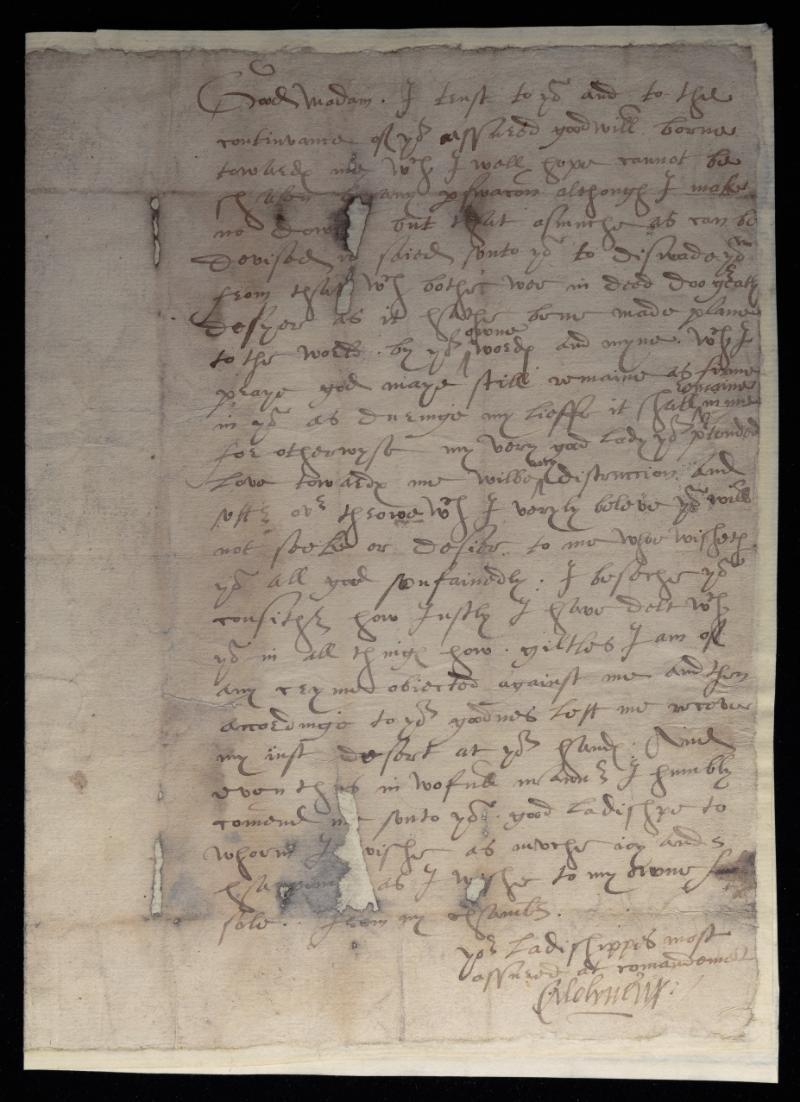 Good Madam. I trust to yor and to the
continvance of yor assured goodwill borne
towardes me wch I well hope cannot be
by any pswacon although I make
no dow but that asmuche as can be
devised is saied vnto yor to diswade yow
from that wch bothe wee in deed doo greatly
desyer as it hathe bene made plaine
to the world by yor owne wordes and myne. wch I
praye god maye still remaine as firme
in yow as duringe my lieffe it shall remaine in me
for otherwyse my very good lady yor ptended
Love towardes me wilbe my distruccion. And
vtter over throwe wch I veryly beleve yow will
not seeke or desier to me whoe wisheth
yow all good vnfainedly. I beseche yow
consither how Iustly I have delt wth
yow in all thinges how giltles I am of
any cryme obiected against me and then
accordinge to yor goodnes lett me recover
my iust desert at yor handes. And
even thus in wofull manner I humbly
comend me vnto yor good ladishipe to
whom I wishe as muche ioy and
as I wishe to my owne
sole. from my chamber.
yor Ladishippes most
assured at comandement